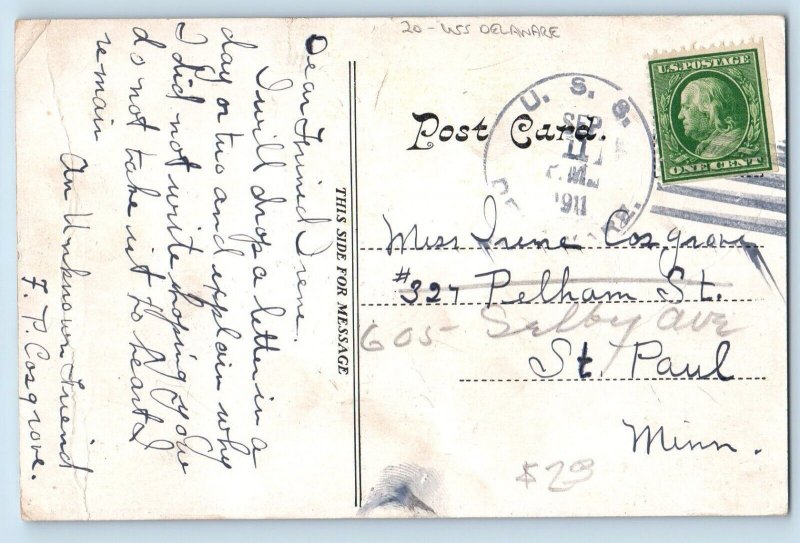 20 - USS DELAWARE
Dear Friend Irene.
I will drop a letter in a
day or two and explain why
I did not write hoping you
do not take it to heart I
remain
An Unknown Friend
F. P. Cosgrove.
THIS SIDE FOR MESSAGE
Post Card.
U. S. S.
SEP
11
1911
U.S. POSTAGE
ONE CENT
Miss Irene Cosgrove
#327 Pelham St.
605 Selby Ave
St. Paul
Minn.
$23